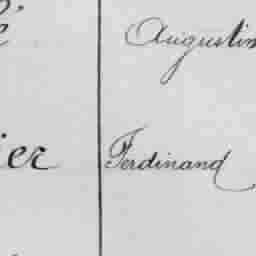 é Augustin
ier Ferdinand